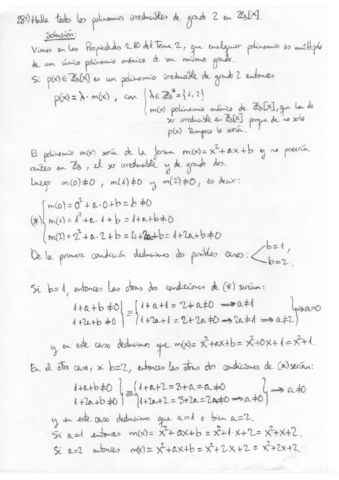 28º) Halla todos los polinomios irreducibles de grado 2 en ℤ₃[X].
Solución:
Vimos en las Propiedades 2.10 del Tema 2, que cualquier polinomio es múltiplo
de un único polinomio mónico de su mismo grado.
Si p(x)∈ℤ₃[X] es un polinomio irreducible de grado 2 entonces
p(x)=λ·m(x), con { λ∈ℤ₃*={1,2}
m(x) polinomio mónico de ℤ₃[X], que ha de
ser irreducible en ℤ₃[X] porque de no serlo
p(x) tampoco lo sería.
El polinomio m(x) sería de la forma m(x)=x²+ax+b y no poseería
raíces en ℤ₃, al ser irreducible y de grado dos.
Luego m(0)≠0, m(1)≠0 y m(2)≠0, es decir:
m(0)=0²+a·0+b=b≠0
(*) { m(1)=1²+a·1+b=1+a+b≠0
m(2)=2²+a·2+b=4+2a+b=1+2a+b≠0
De la primera condición deducimos dos posibles casos: b=1,
b=2.
Si b=1, entonces las otras dos condiciones de (*) serían:
1+a+b≠0 } ≡ { 1+a+1=2+a≠0 → a≠1 } → a=0
1+2a+b≠0 } ≡ { 1+2a+1=2+2a≠0 → 2a≠1 → a≠2
y en este caso deducimos que m(x)=x²+ax+b=x²+0x+1=x²+1.
En el otro caso, si b=2, entonces las otras dos condiciones de (*) serían:
1+a+b≠0 } ≡ { 1+a+2=3+a=a≠0 } → a≠0
1+2a+b≠0 } ≡ { 1+2a+2=3+2a=2a≠0 → a≠0
y en este caso deducimos que a=1 o bien a=2.
Si a=1 entonces m(x)=x²+ax+b=x²+1·x+2=x²+x+2.
Si a=2 entonces m(x)=x²+ax+b=x²+2x+2=x²+2x+2.